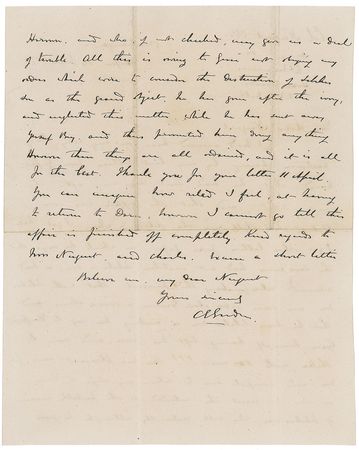 Haroun, and who if not checked, may give us a deal
of trouble. All this is owing to Gessi not obeying my
orders which were to consider the destruction of
as the grand object, he has gone after the ivory,
and neglected this matter while he has sent away
Yusuf Bey, and thus prevented him doing anything
However these things are all ordained, and it is all
for the best. Thanks you for your letter 11 April
You can imagine how riled I feel, at having
to return to Dara, however I cannot go till this
affair is finished off completely Kind regards to
Mrs Nugent. and Charles. Excuse a short letter
Believe me. my dear Nugent
Yours sincerely
CGGordon.